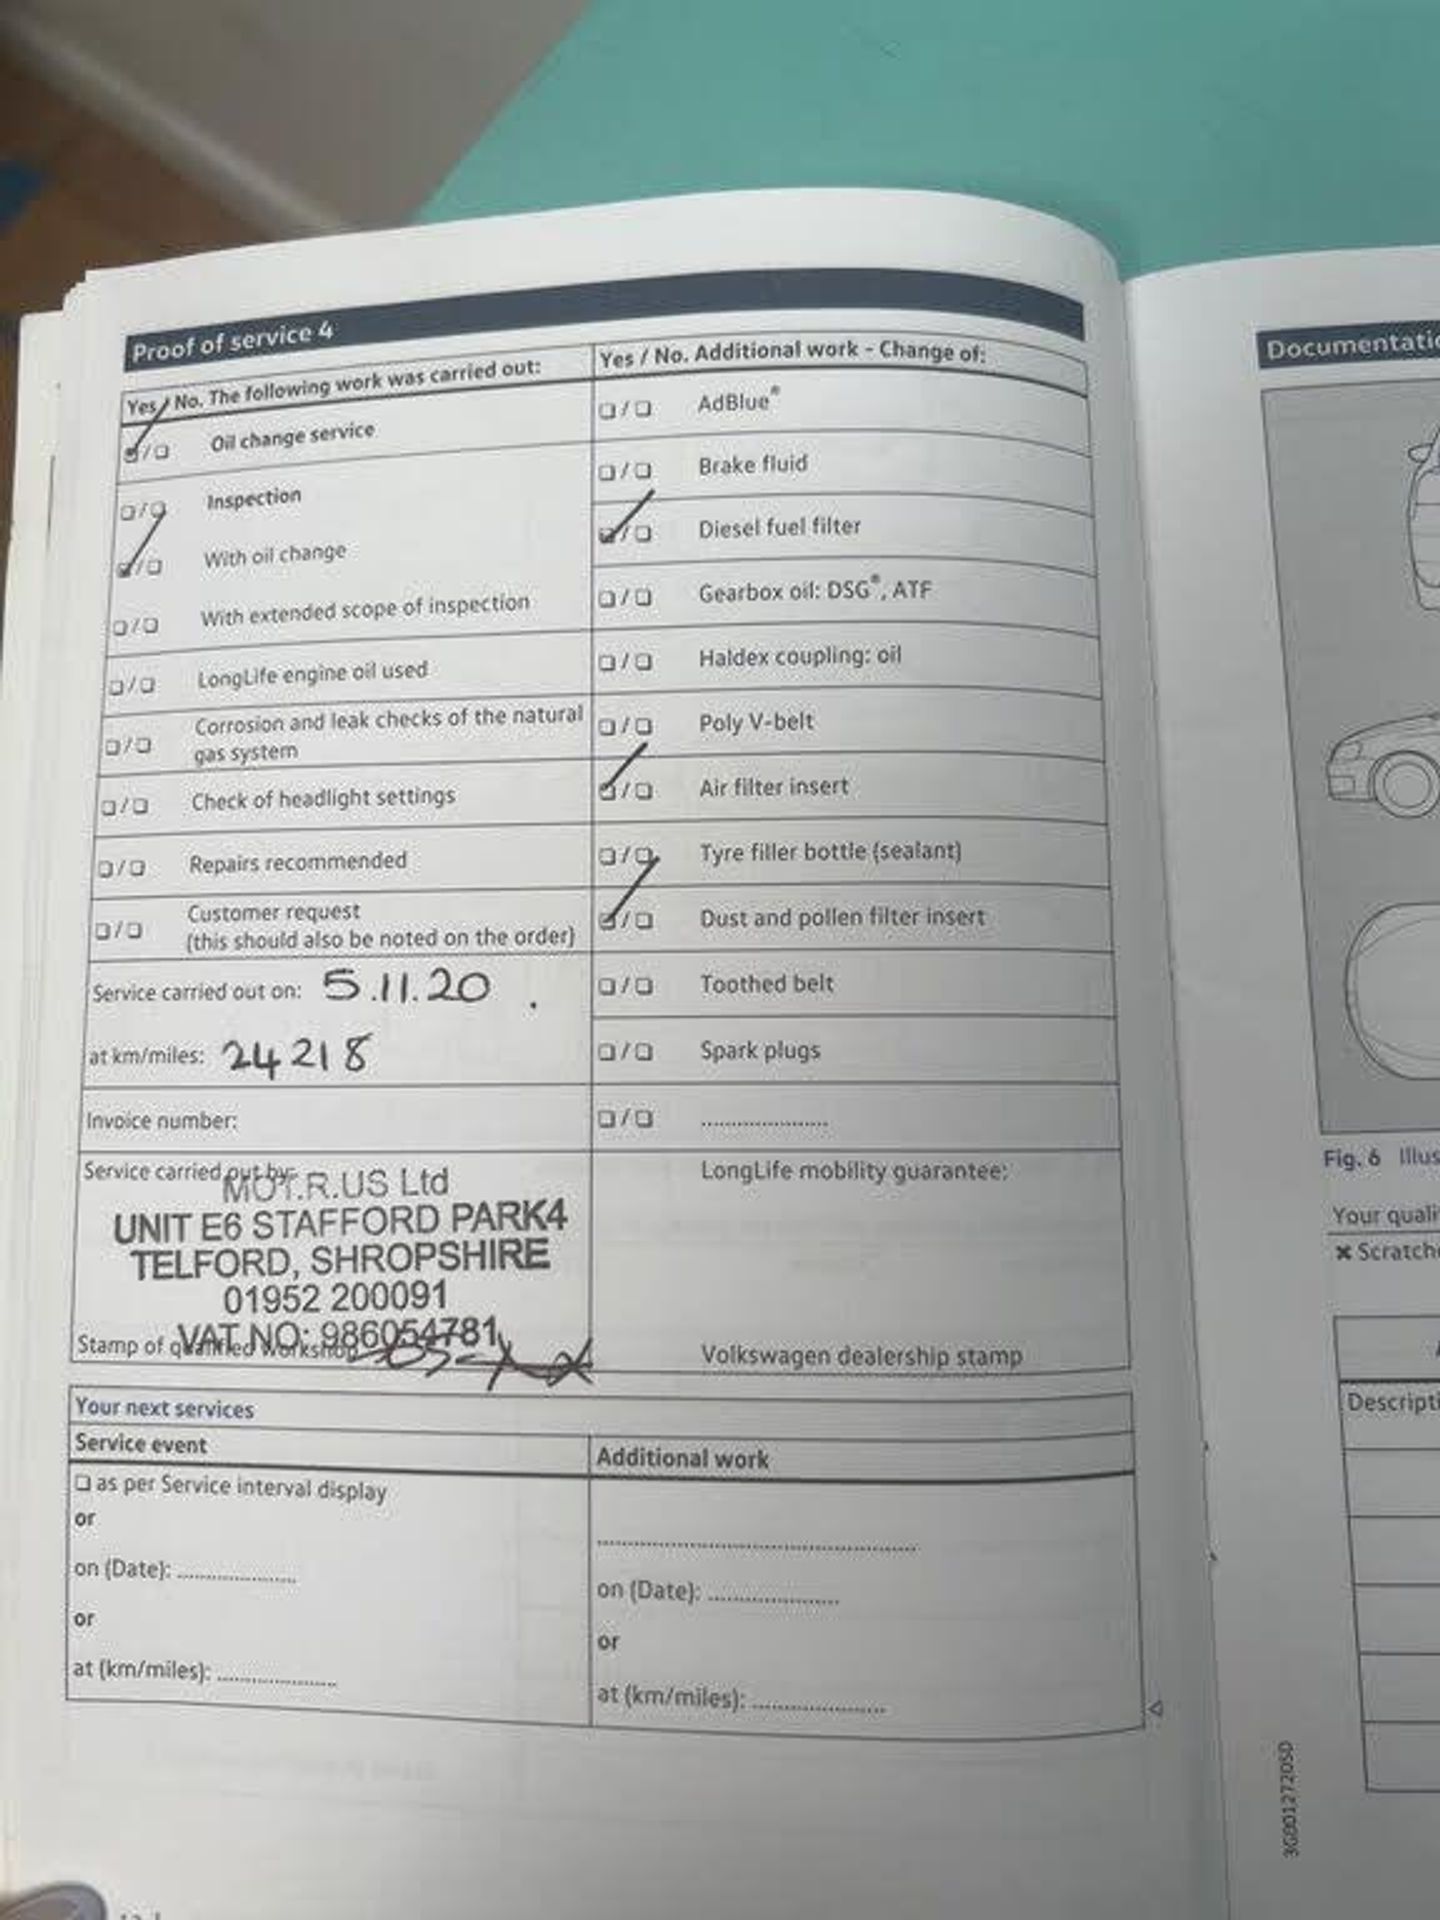 Proof of service 4
Yes / No. The following work was carried out:
☑/❏ Oil change service
❏/❏ Inspection
☑/❏ With oil change
❏/❏ With extended scope of inspection
❏/❏ LongLife engine oil used
❏/❏ Corrosion and leak checks of the natural
gas system
❏/❏ Check of headlight settings
❏/❏ Repairs recommended
❏/❏ Customer request
(this should also be noted on the order)
Service carried out on: 5.11.20
at km/miles: 24218
Invoice number:
Service carried out by:
MOT.R.US Ltd
UNIT E6 STAFFORD PARK4
TELFORD, SHROPSHIRE
01952 200091
VAT NO: 986054781
Stamp of qualified workshop
Yes / No. Additional work - Change of:
❏/❏ AdBlue®
❏/❏ Brake fluid
☑/❏ Diesel fuel filter
❏/❏ Gearbox oil: DSG®, ATF
❏/❏ Haldex coupling: oil
❏/❏ Poly V-belt
☑/❏ Air filter insert
❏/❏ Tyre filler bottle (sealant)
☑/❏ Dust and pollen filter insert
❏/❏ Toothed belt
❏/❏ Spark plugs
❏/❏ .....................
LongLife mobility guarantee:
Volkswagen dealership stamp
Your next services
Service event
❏ as per Service interval display
or
on (Date): ....................
or
at (km/miles): ....................
Additional work
......................................................
on (Date): ......................
or
at (km/miles): ......................
Documentatio
Fig. 6 Illus
Your quali
✖ Scratche
Descripti
3GB012720SD